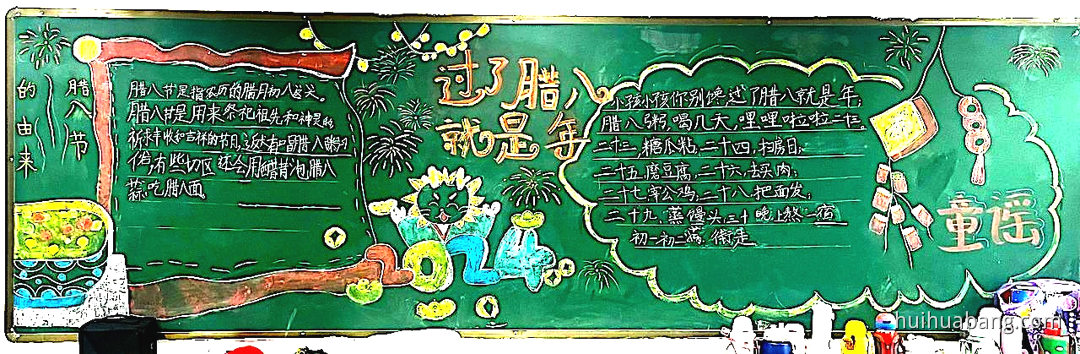 腊八节
的由来
腊八节是指农历的腊月初八这天。
腊八节是用来祭祀祖先和神灵的
祈求丰收和吉祥的节日,
有些地区还会用醋普泡腊八
蒜,吃腊八面
过了腊八
就是年
小孩小孩你别馋,过了腊八就是年;
腊八粥,喝几天,哩哩啦啦二十三。
二十三,糖瓜粘,二十四,扫房日;
二十五,磨豆腐,二十六,去买肉;
二十七,宰公鸡,二十八,把面发;
二十九,蒸馒头,三十晚上熬一宿
初一初二满街走
童谣
2024
huihuabang.com